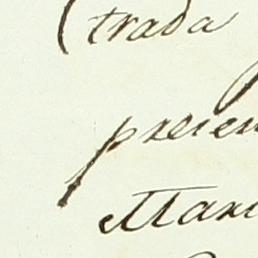 (trada
presen
Mari